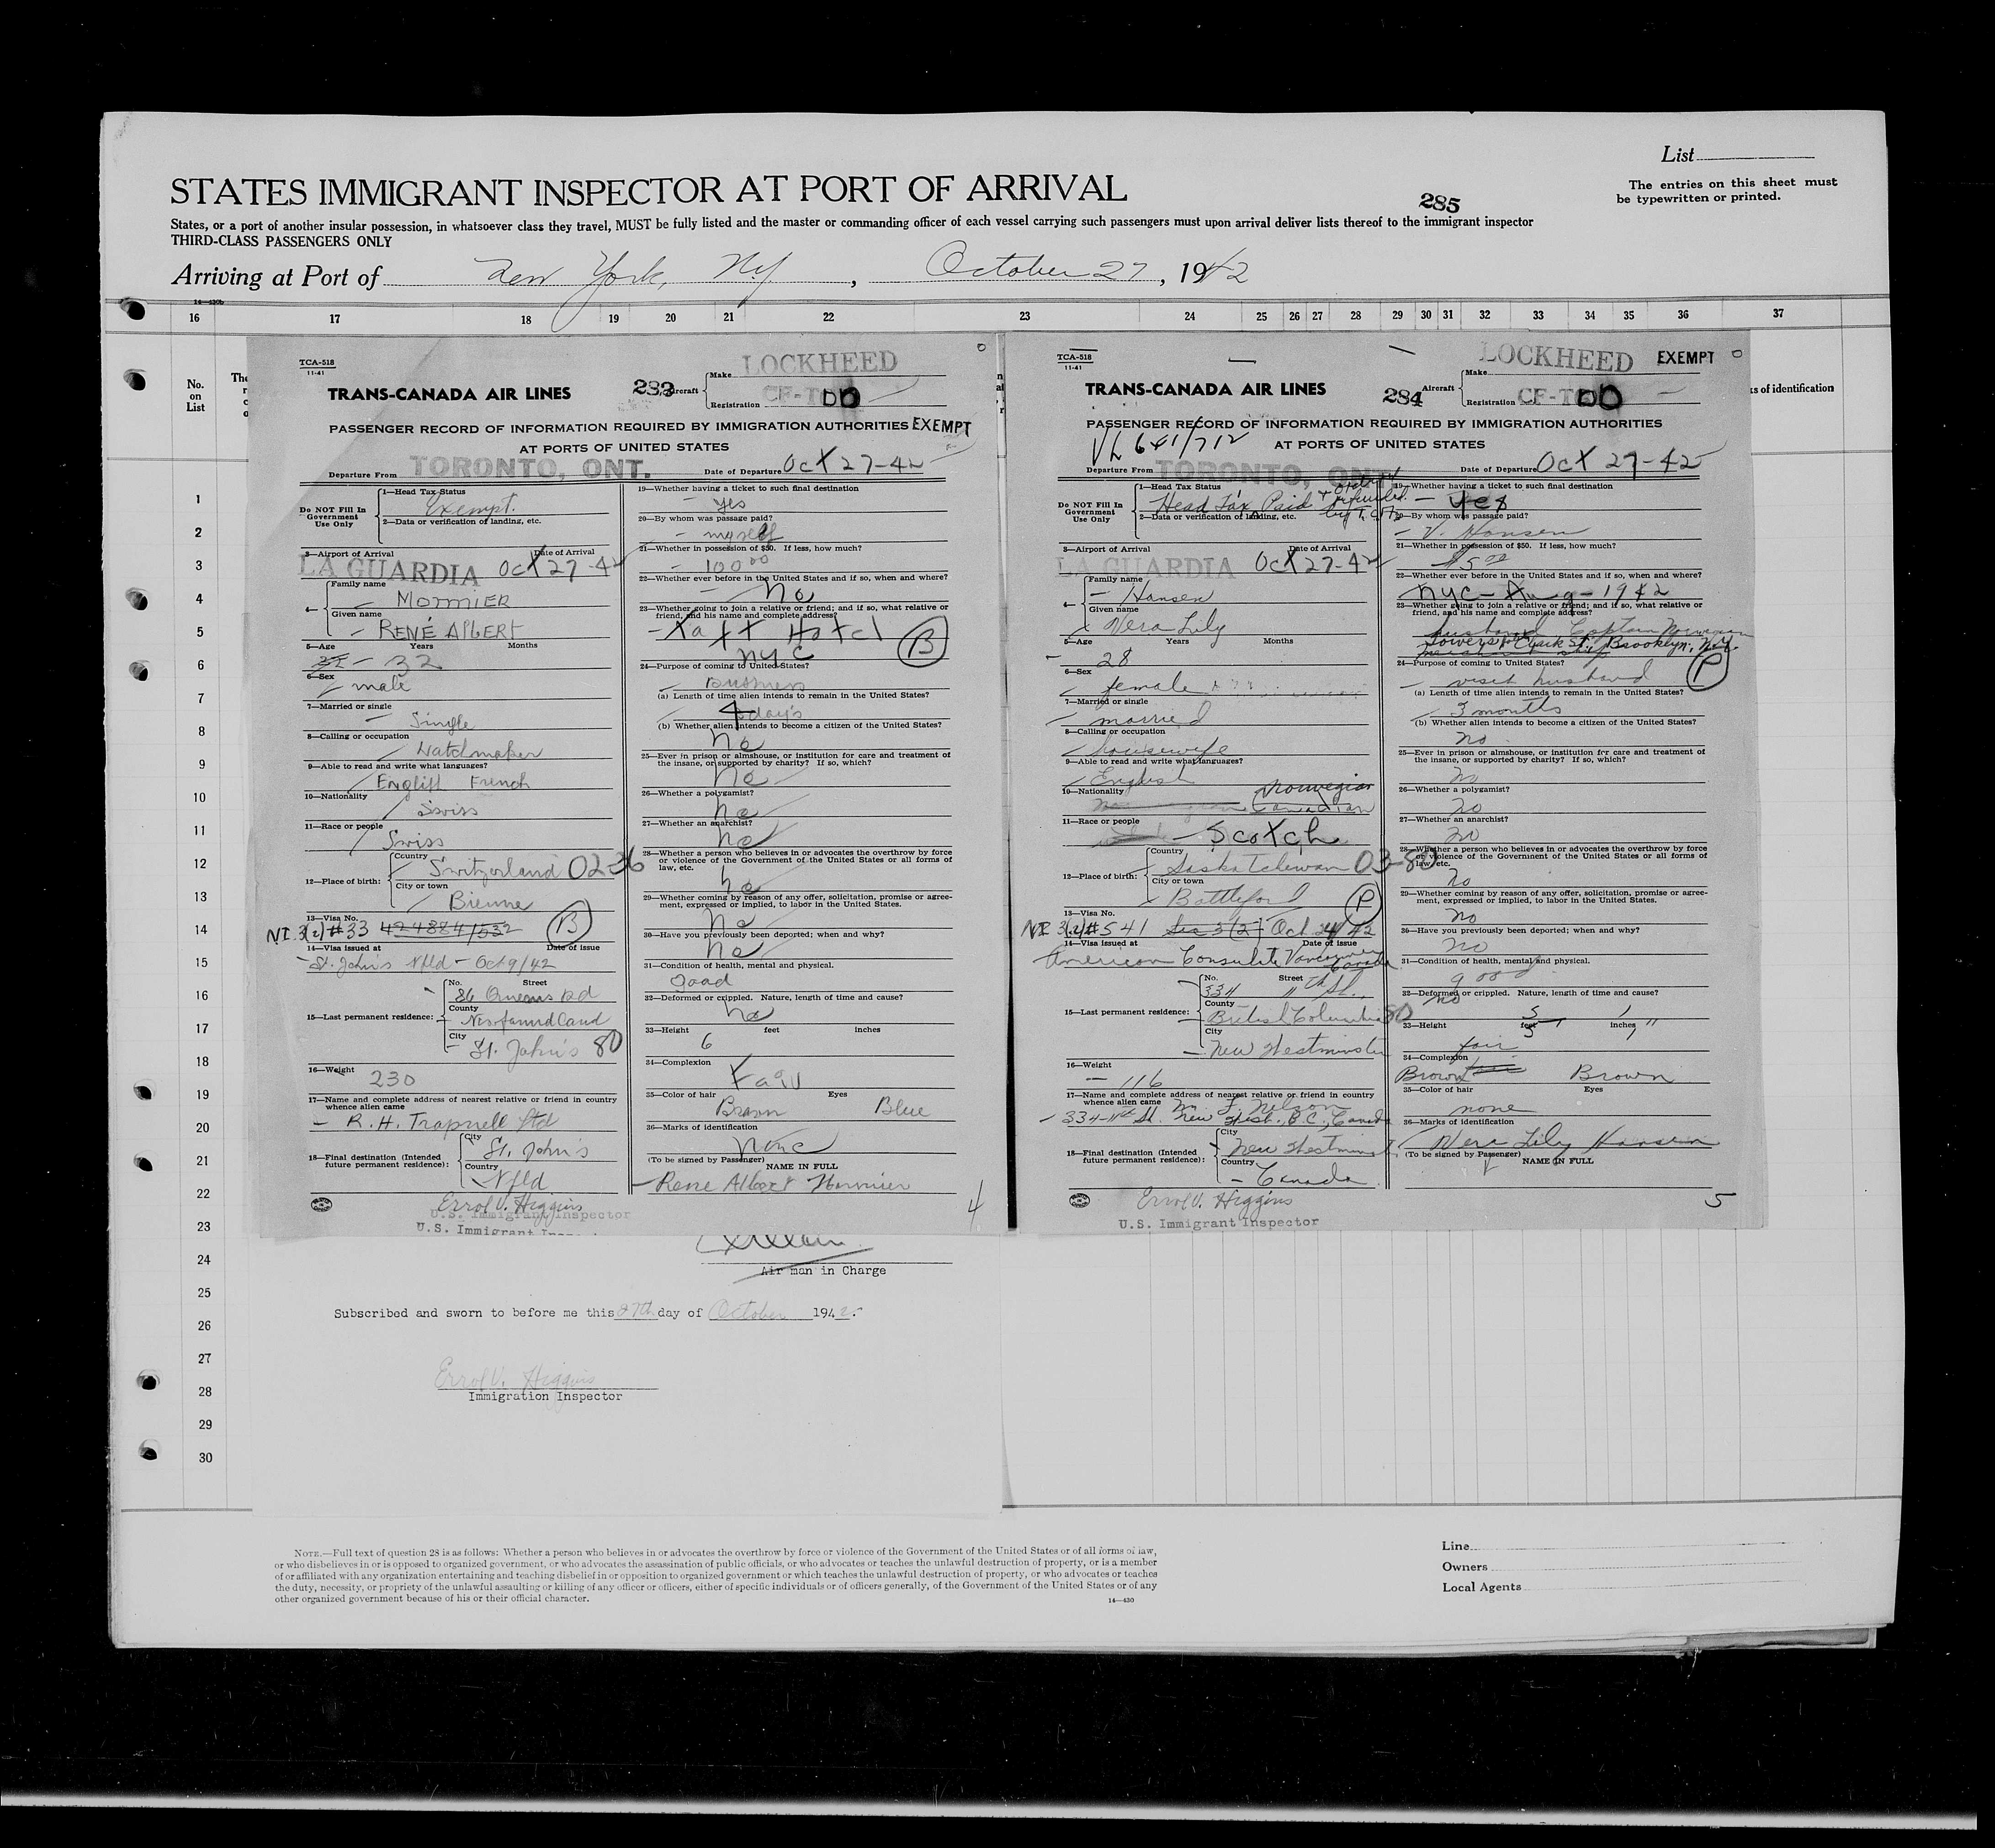 List
STATES IMMIGRANT INSPECTOR AT PORT OF ARRIVAL
285
The entries on this sheet must
be typewritten or printed.
States, or a port of another insular possession, in whatsoever class they travel, MUST be fully listed and the master or commanding officer of each vessel carrying such passengers must upon arrival deliver lists thereof to the immigrant inspector
THIRD-CLASS PASSENGERS ONLY
Arriving at Port of New York, N.Y. , October 27, 1942
16 17 18 19 20 21 22 23 24 25 26 27 28 29 30 31 32 33 34 35 36 37
No.
on
List
1
2
3
4
5
6
7
8
9
10
11
12
13
14
15
16
17
18
19
20
21
22
23
24
25
26
27
28
29
30
TCA-518
11-41
TRANS-CANADA AIR LINES
283
Aircraft
Make LOCKHEED
Registration CF-T DD
PASSENGER RECORD OF INFORMATION REQUIRED BY IMMIGRATION AUTHORITIES EXEMPT
AT PORTS OF UNITED STATES
Departure From TORONTO, ONT. Date of Departure Oct 27-42
Do NOT Fill In
Government
Use Only
1—Head Tax Status
Exempt.
2—Data or verification of landing, etc.
3—Airport of Arrival Date of Arrival
LA GUARDIA Oct 27-42
4—
Family name
Given name
RENÉ AlBERT
5—Age Years Months
32
6—Sex
male
7—Married or single
Single
8—Calling or occupation
Watchmaker
9—Able to read and write what languages?
English French
10—Nationality
Swiss
11—Race or people
Swiss
12—Place of birth:
Country
Switzerland 02-36
City or town
Bienne
13—Visa No.
NI 3(2) #33 424884/532 B
14—Visa issued at Date of issue
St. John's Nfld - Oct 9/42
15—Last permanent residence:
No. Street
86 Queens Rd
County
Newfoundland
City
St. John's 80
16—Weight
230
17—Name and complete address of nearest relative or friend in country
whence alien came
R. H. Trapnell Ltd
18—Final destination (Intended
future permanent residence):
City
St. John's
Country
Nfld
Errol V. Higgins
U.S. Immigrant Inspector
U.S. Immigrant
19—Whether having a ticket to such final destination
yes
20—By whom was passage paid?
myself
21—Whether in possession of $50. If less, how much?
100 00
22—Whether ever before in the United States and if so, when and where?
no
23—Whether going to join a relative or friend; and if so, what relative or
friend, and his name and complete address?
Taft Hotel
NYC B
24—Purpose of coming to United States?
Business
(a) Length of time alien intends to remain in the United States?
4 day's
(b) Whether alien intends to become a citizen of the United States?
no
25—Ever in prison or almshouse, or institution for care and treatment of
the insane, or supported by charity? If so, which?
no
26—Whether a polygamist?
no
27—Whether an anarchist?
no
28—Whether a person who believes in or advocates the overthrow by force
or violence of the Government of the United States or all forms of
law, etc.
no
29—Whether coming by reason of any offer, solicitation, promise or agree-
ment, expressed or implied, to labor in the United States.
no
30—Have you previously been deported; when and why?
no
31—Condition of health, mental and physical.
good
32—Deformed or crippled. Nature, length of time and cause?
no
33—Height feet inches
6
34—Complexion
Fair
35—Color of hair Eyes
Brown Blue
36—Marks of identification
None
(To be signed by Passenger) NAME IN FULL
Rene Albert
4
TCA-518
11-41
TRANS-CANADA AIR LINES
284
Aircraft
Make LOCKHEED EXEMPT
Registration CF-T DD
PASSENGER RECORD OF INFORMATION REQUIRED BY IMMIGRATION AUTHORITIES
AT PORTS OF UNITED STATES
Departure From TORONTO, ONT. Date of Departure Oct 27-42
Do NOT Fill In
Government
Use Only
1—Head Tax Status
Head Tax Paid
2—Data or verification of landing, etc.
3—Airport of Arrival Date of Arrival
LA GUARDIA Oct 27-42
4—
Family name
Hansen
Given name
Vera Lily
5—Age Years Months
28
6—Sex
female
7—Married or single
married
8—Calling or occupation
housewife
9—Able to read and write what languages?
English
10—Nationality
Norwegian
Canadian
11—Race or people
Scotch
12—Place of birth:
Country
Saskatchewan 03-80
City or town
Battleford P
13—Visa No.
NI 3(2) #541 Sec 3(2) Oct 24/42
14—Visa issued at Date of issue
American Consulate Vancouver
Canada
15—Last permanent residence:
No. Street
334 11th St.
County
British Columbia 80
City
New Westminster
16—Weight
116
17—Name and complete address of nearest relative or friend in country
whence alien came
334-11th St. New West., B.C., Canada
18—Final destination (Intended
future permanent residence):
City
New Westminster
Country
Canada
Errol V. Higgins
U.S. Immigrant Inspector
19—Whether having a ticket to such final destination
yes
20—By whom was passage paid?
V. Hansen
21—Whether in possession of $50. If less, how much?
22—Whether ever before in the United States and if so, when and where?
NYC - Aug - 1942
23—Whether going to join a relative or friend; and if so, what relative or
friend, and his name and complete address?
husband Captain Norwegian
Clark St., Brooklyn, N.Y.
24—Purpose of coming to United States?
visit husband P
(a) Length of time alien intends to remain in the United States?
3 months
(b) Whether alien intends to become a citizen of the United States?
no
25—Ever in prison or almshouse, or institution for care and treatment of
the insane, or supported by charity? If so, which?
no
26—Whether a polygamist?
no
27—Whether an anarchist?
no
28—Whether a person who believes in or advocates the overthrow by force
or violence of the Government of the United States or all forms of
law, etc.
no
29—Whether coming by reason of any offer, solicitation, promise or agree-
ment, expressed or implied, to labor in the United States.
no
30—Have you previously been deported; when and why?
no
31—Condition of health, mental and physical.
good
32—Deformed or crippled. Nature, length of time and cause?
no
33—Height feet inches
fair
34—Complexion
Brown Brown
35—Color of hair Eyes
none
36—Marks of identification
Vera Lily Hansen
(To be signed by Passenger) NAME IN FULL
5
s of identification
Air man in Charge
Subscribed and sworn to before me this 27th day of October 1942.
Errol V. Higgins
Immigration Inspector
NOTE.—Full text of question 28 is as follows: Whether a person who believes in or advocates the overthrow by force or violence of the Government of the United States or of all forms of law,
or who disbelieves in or is opposed to organized government, or who advocates the assassination of public officials, or who advocates or teaches the unlawful destruction of property, or is a member
of or affiliated with any organization entertaining and teaching disbelief in or opposition to organized government or which teaches the unlawful destruction of property, or who advocates or teaches
the duty, necessity, or propriety of the unlawful assaulting or killing of any officer or officers, either of specific individuals or of officers generally, of the Government of the United States or of any
other organized government because of his or their official character.
14—430
Line
Owners
Local Agents